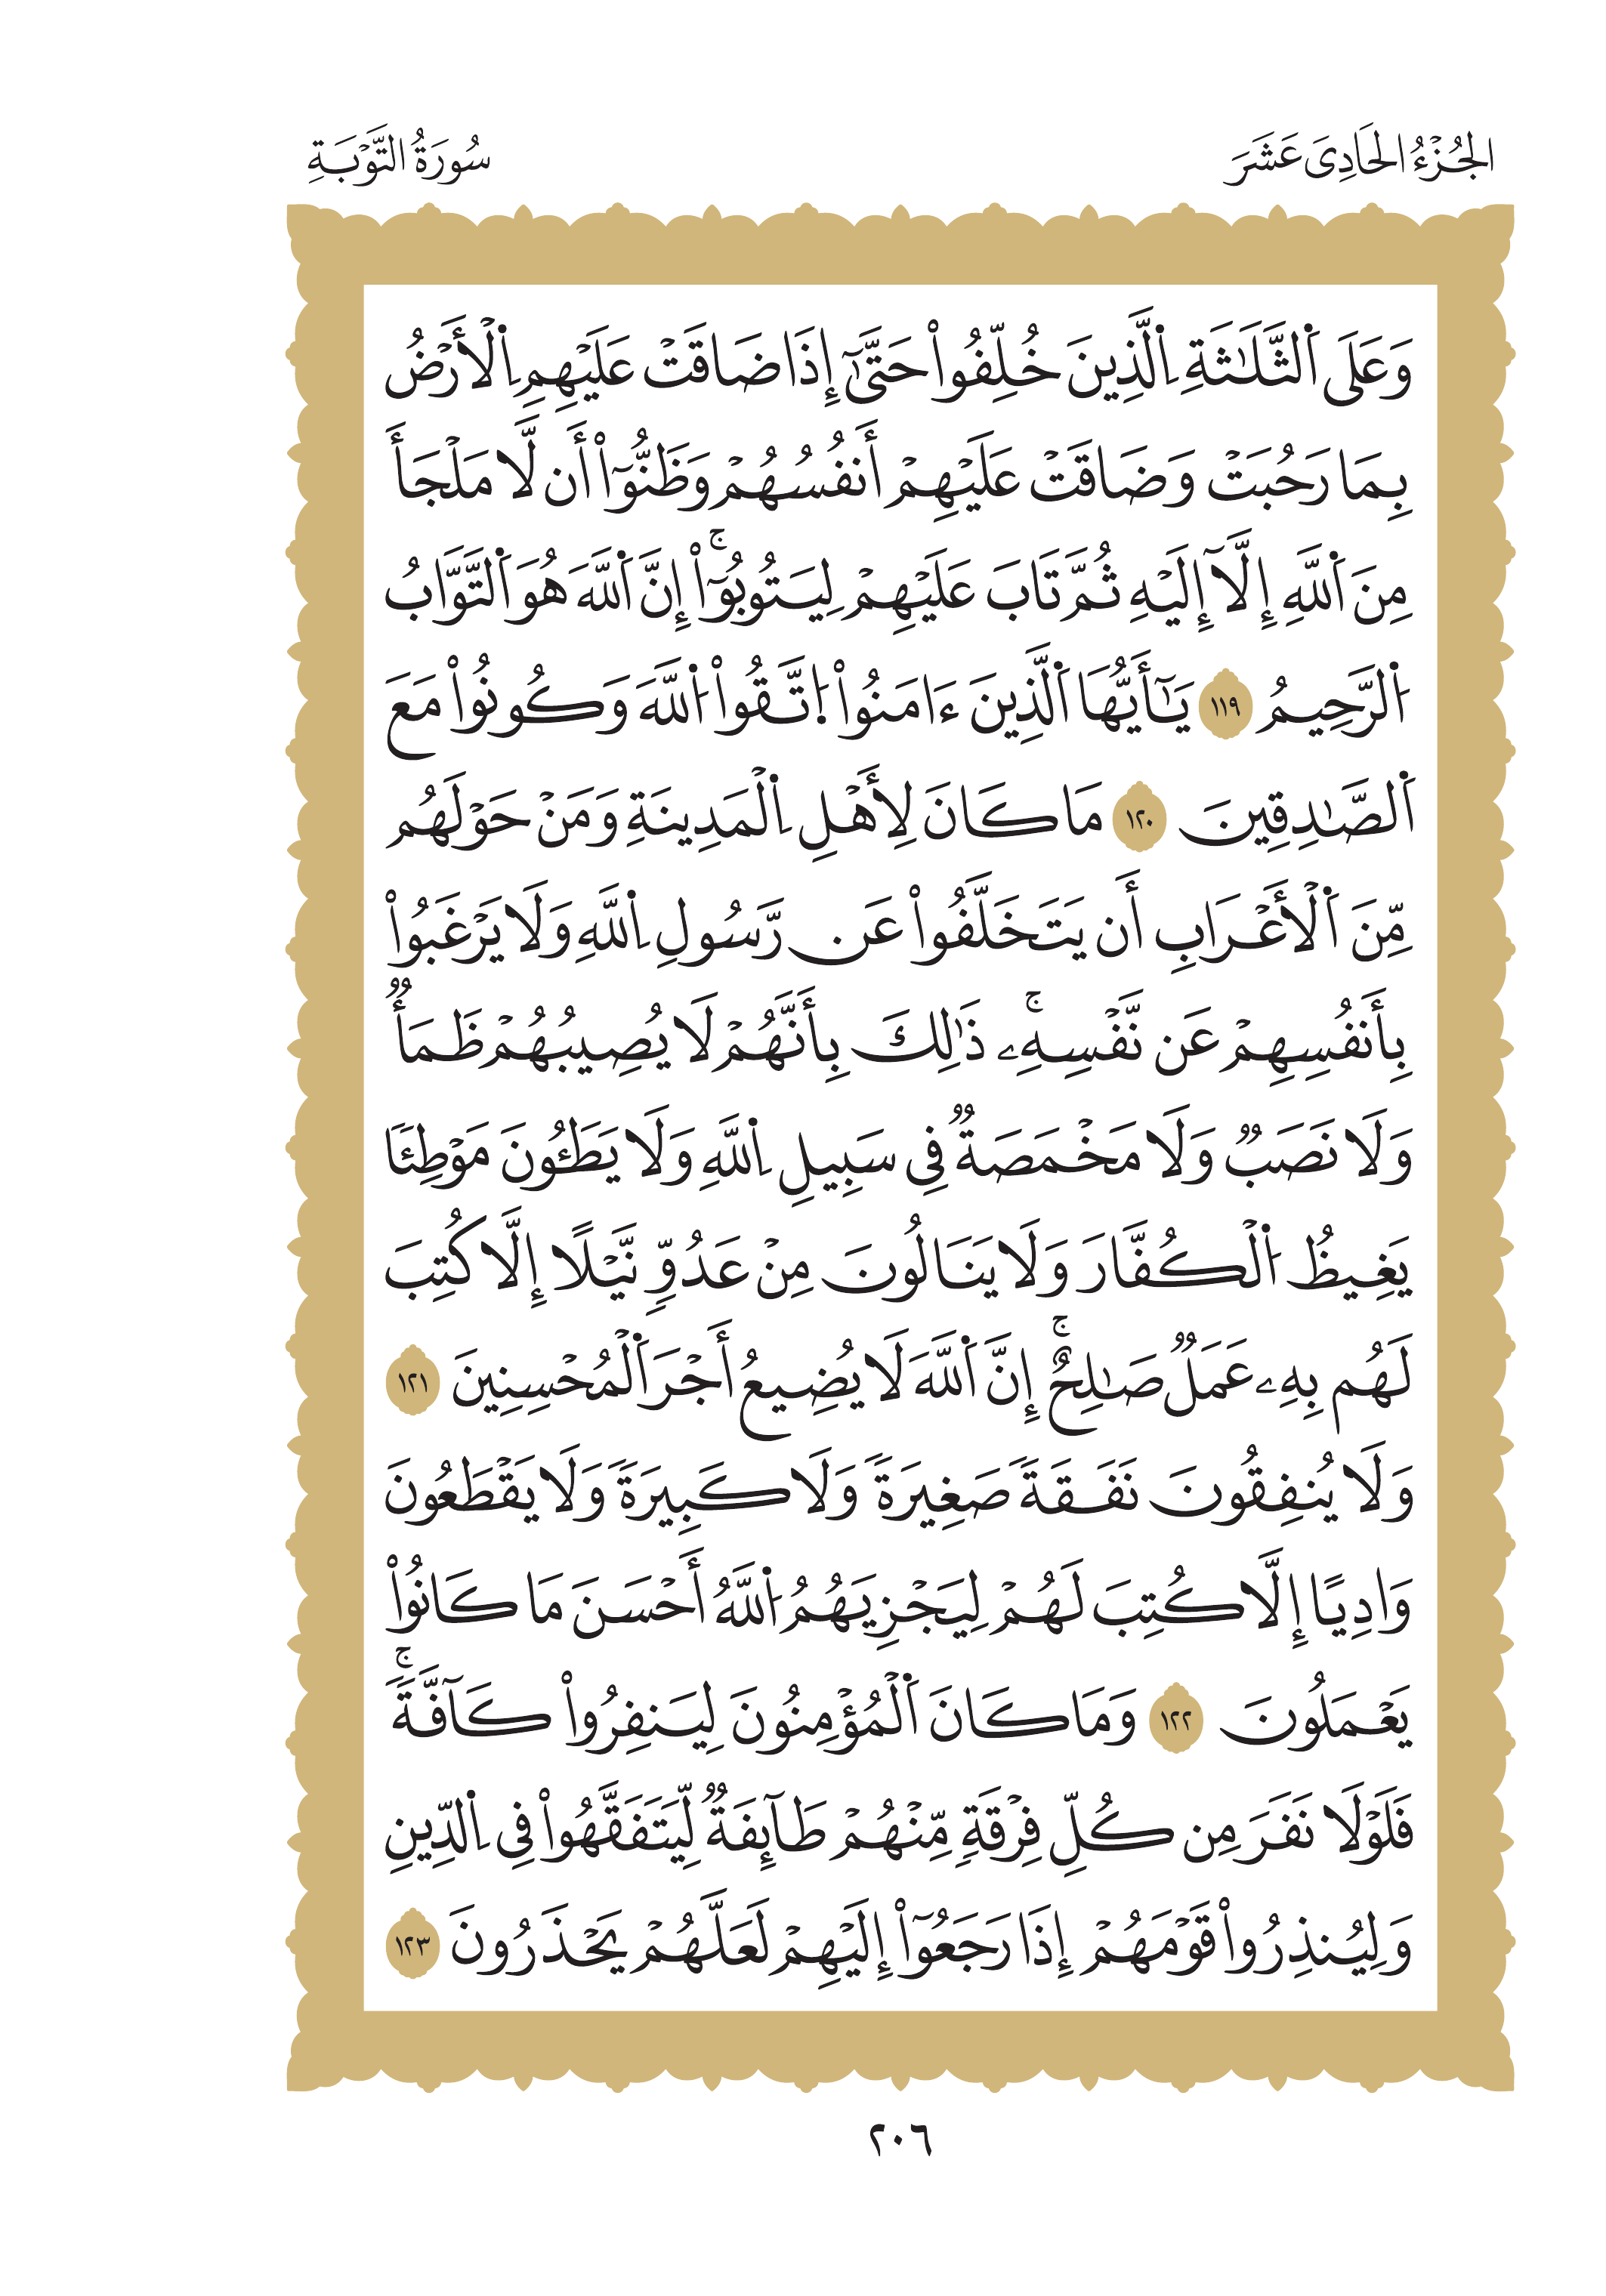 الجُزْءُ الحَادِىَ عَشَرَ
سُورَةُ التَّوْبَةِ
وَعَلَى اَ۬لثَّلَٰثَةِ اِ۬لَّذِينَ خُلِّفُواْ حَتَّىٰٓ إِذَا ضَاقَتْ عَلَيْهِمِ اِ۬لْأَرْضُ
بِمَا رَحُبَتْ وَضَاقَتْ عَلَيْهِمْ أَنفُسُهُمْ وَظَنُّوٓاْ أَن لَّا مَلْجَأَ
مِنَ اَ۬للَّهِ إِلَّآ إِلَيْهِ ثُمَّ تَابَ عَلَيْهِمْ لِيَتُوبُوٓاْۚ إِنَّ اَ۬للَّهَ هُوَ اَ۬لتَّوَّابُ
اُ۬لرَّحِيمُ ١١٩ يَٰٓأَيُّهَا اَ۬لَّذِينَ ءَامَنُواْ اُ۪تَّقُواْ اُ۬للَّهَ وَكُونُواْ مَعَ
اَ۬لصَّٰدِقِينَ ١٢٠ مَا كَانَ لِأَهْلِ اِ۬لْمَدِينَةِ وَمَنْ حَوْلَهُم
مِّنَ اَ۬لْأَعْرَابِ أَن يَتَخَلَّفُواْ عَن رَّسُولِ اِ۬للَّهِ وَلَا يَرْغَبُواْ
بِأَنفُسِهِمْ عَن نَّفْسِهِۦۚ ذَٰلِكَ بِأَنَّهُمْ لَا يُصِيبُهُمْ ظَمَأٌ
وَلَا نَصَبٌ وَلَا مَخْمَصَةٌ فِى سَبِيلِ اِ۬للَّهِ وَلَا يَطَـُٔونَ مَوْطِئًا
يَغِيظُ اُ۬لْكُفَّارَ وَلَا يَنَالُونَ مِنْ عَدُوٍّ نَّيْلًا إِلَّا كُتِبَ
لَهُم بِهِۦ عَمَلٌ صَٰلِحٌۚ إِنَّ اَ۬للَّهَ لَا يُضِيعُ أَجْرَ اَ۬لْمُحْسِنِينَ ١٢١
وَلَا يُنفِقُونَ نَفَقَةً صَغِيرَةً وَلَا كَبِيرَةً وَلَا يَقْطَعُونَ
وَادِيًا إِلَّا كُتِبَ لَهُمْ لِيَجْزِيَهُمُ اُ۬للَّهُ أَحْسَنَ مَا كَانُواْ
يَعْمَلُونَ ١٢٢ وَمَا كَانَ اَ۬لْمُؤْمِنُونَ لِيَنفِرُواْ كَآفَّةًۚ
فَلَوْلَا نَفَرَ مِن كُلِّ فِرْقَةٍ مِّنْهُمْ طَآئِفَةٌ لِّيَتَفَقَّهُواْ فِى اِ۬لدِّينِ
وَلِيُنذِرُواْ قَوْمَهُمْ إِذَا رَجَعُوٓاْ إِلَيْهِمْ لَعَلَّهُمْ يَحْذَرُونَ ١٢٣
٢٠٦